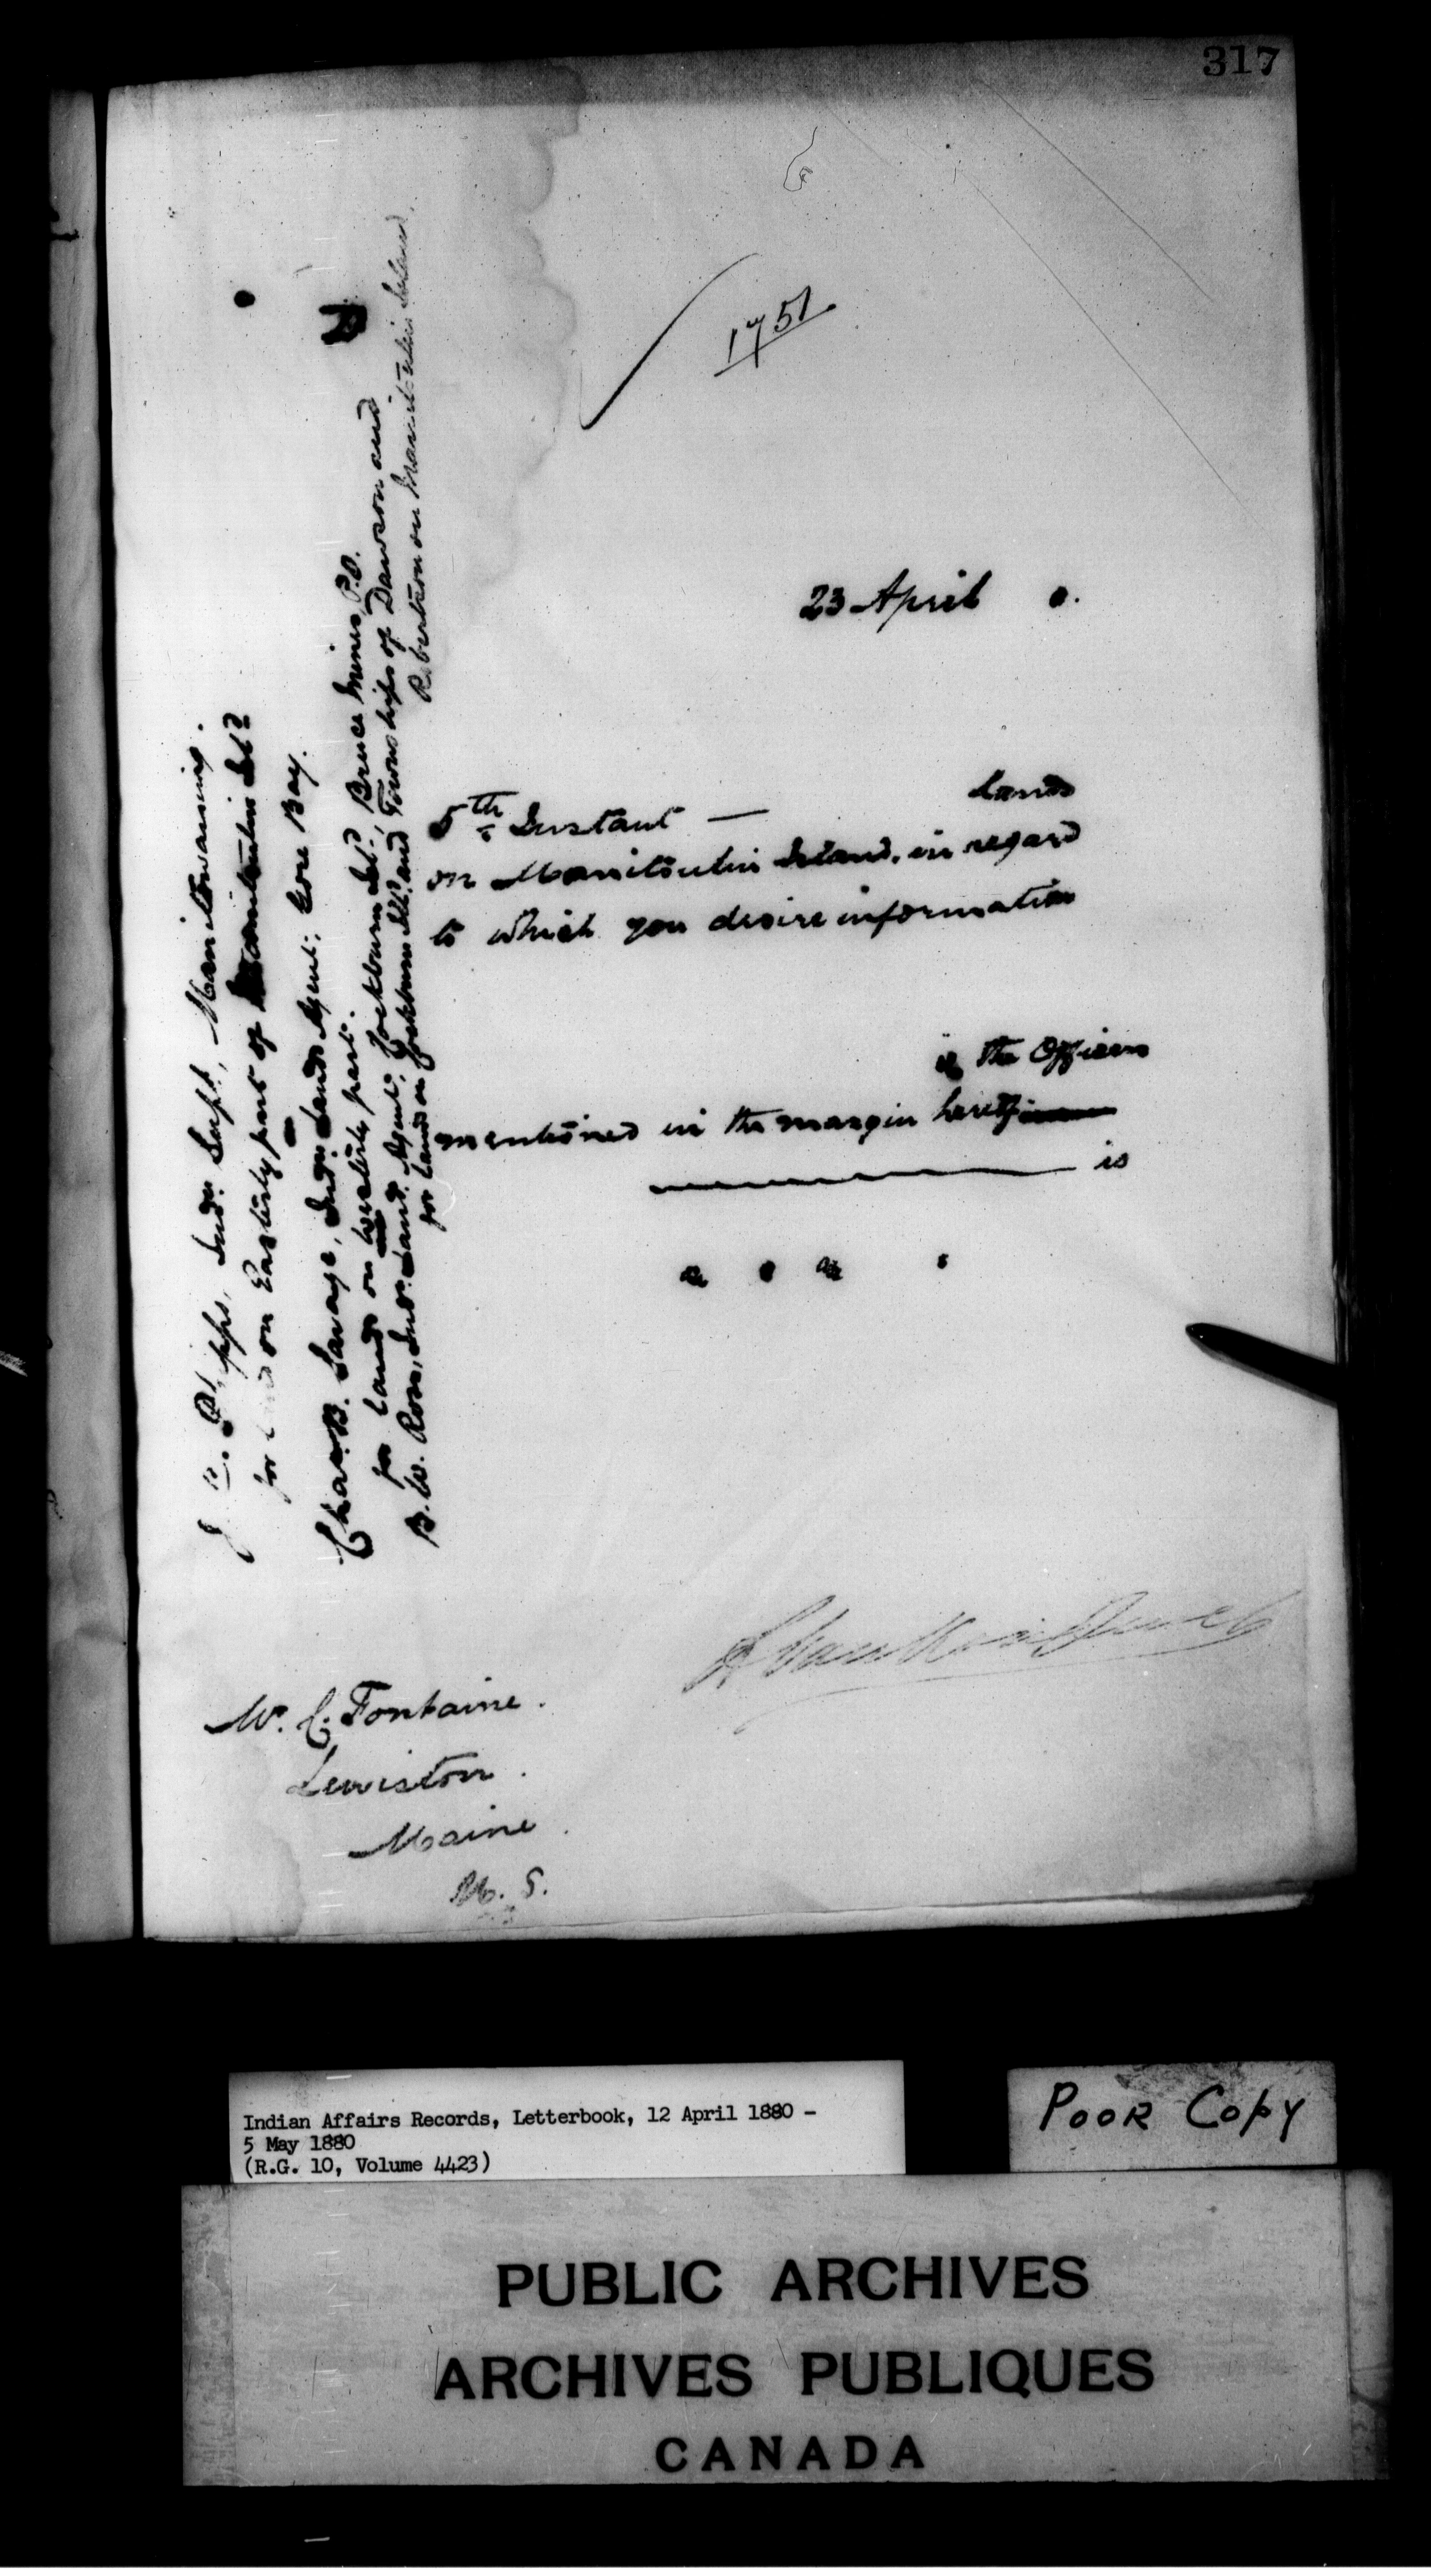 317
1751
23 April 0.
5th Instant — Lands
on Manitoulin Island, in regard
to which you desire information
of the Officers
mentioned in the margin hereof
is
J. C. Phipps, Indn. Supt., Manitowaning.
for land on Easterly part of Manitoulin Isld
Chas. B. Savage, Indn. Land Agent, Gore Bay.
for lands on westerly part.
B. W. Ross, Indn. Land Agent, Cockburn Isld., Bruce Mines P.O.
for lands on Cockburn Isld. and Townships of Dawson and
Robertson on Manitoulin Island.
Mr. C. Fontaine.
Lewiston.
Maine.
Indian Affairs Records, Letterbook, 12 April 1880 -
5 May 1880
(R.G. 10, Volume 4423)
POOR COPY
PUBLIC ARCHIVES
ARCHIVES PUBLIQUES
CANADA